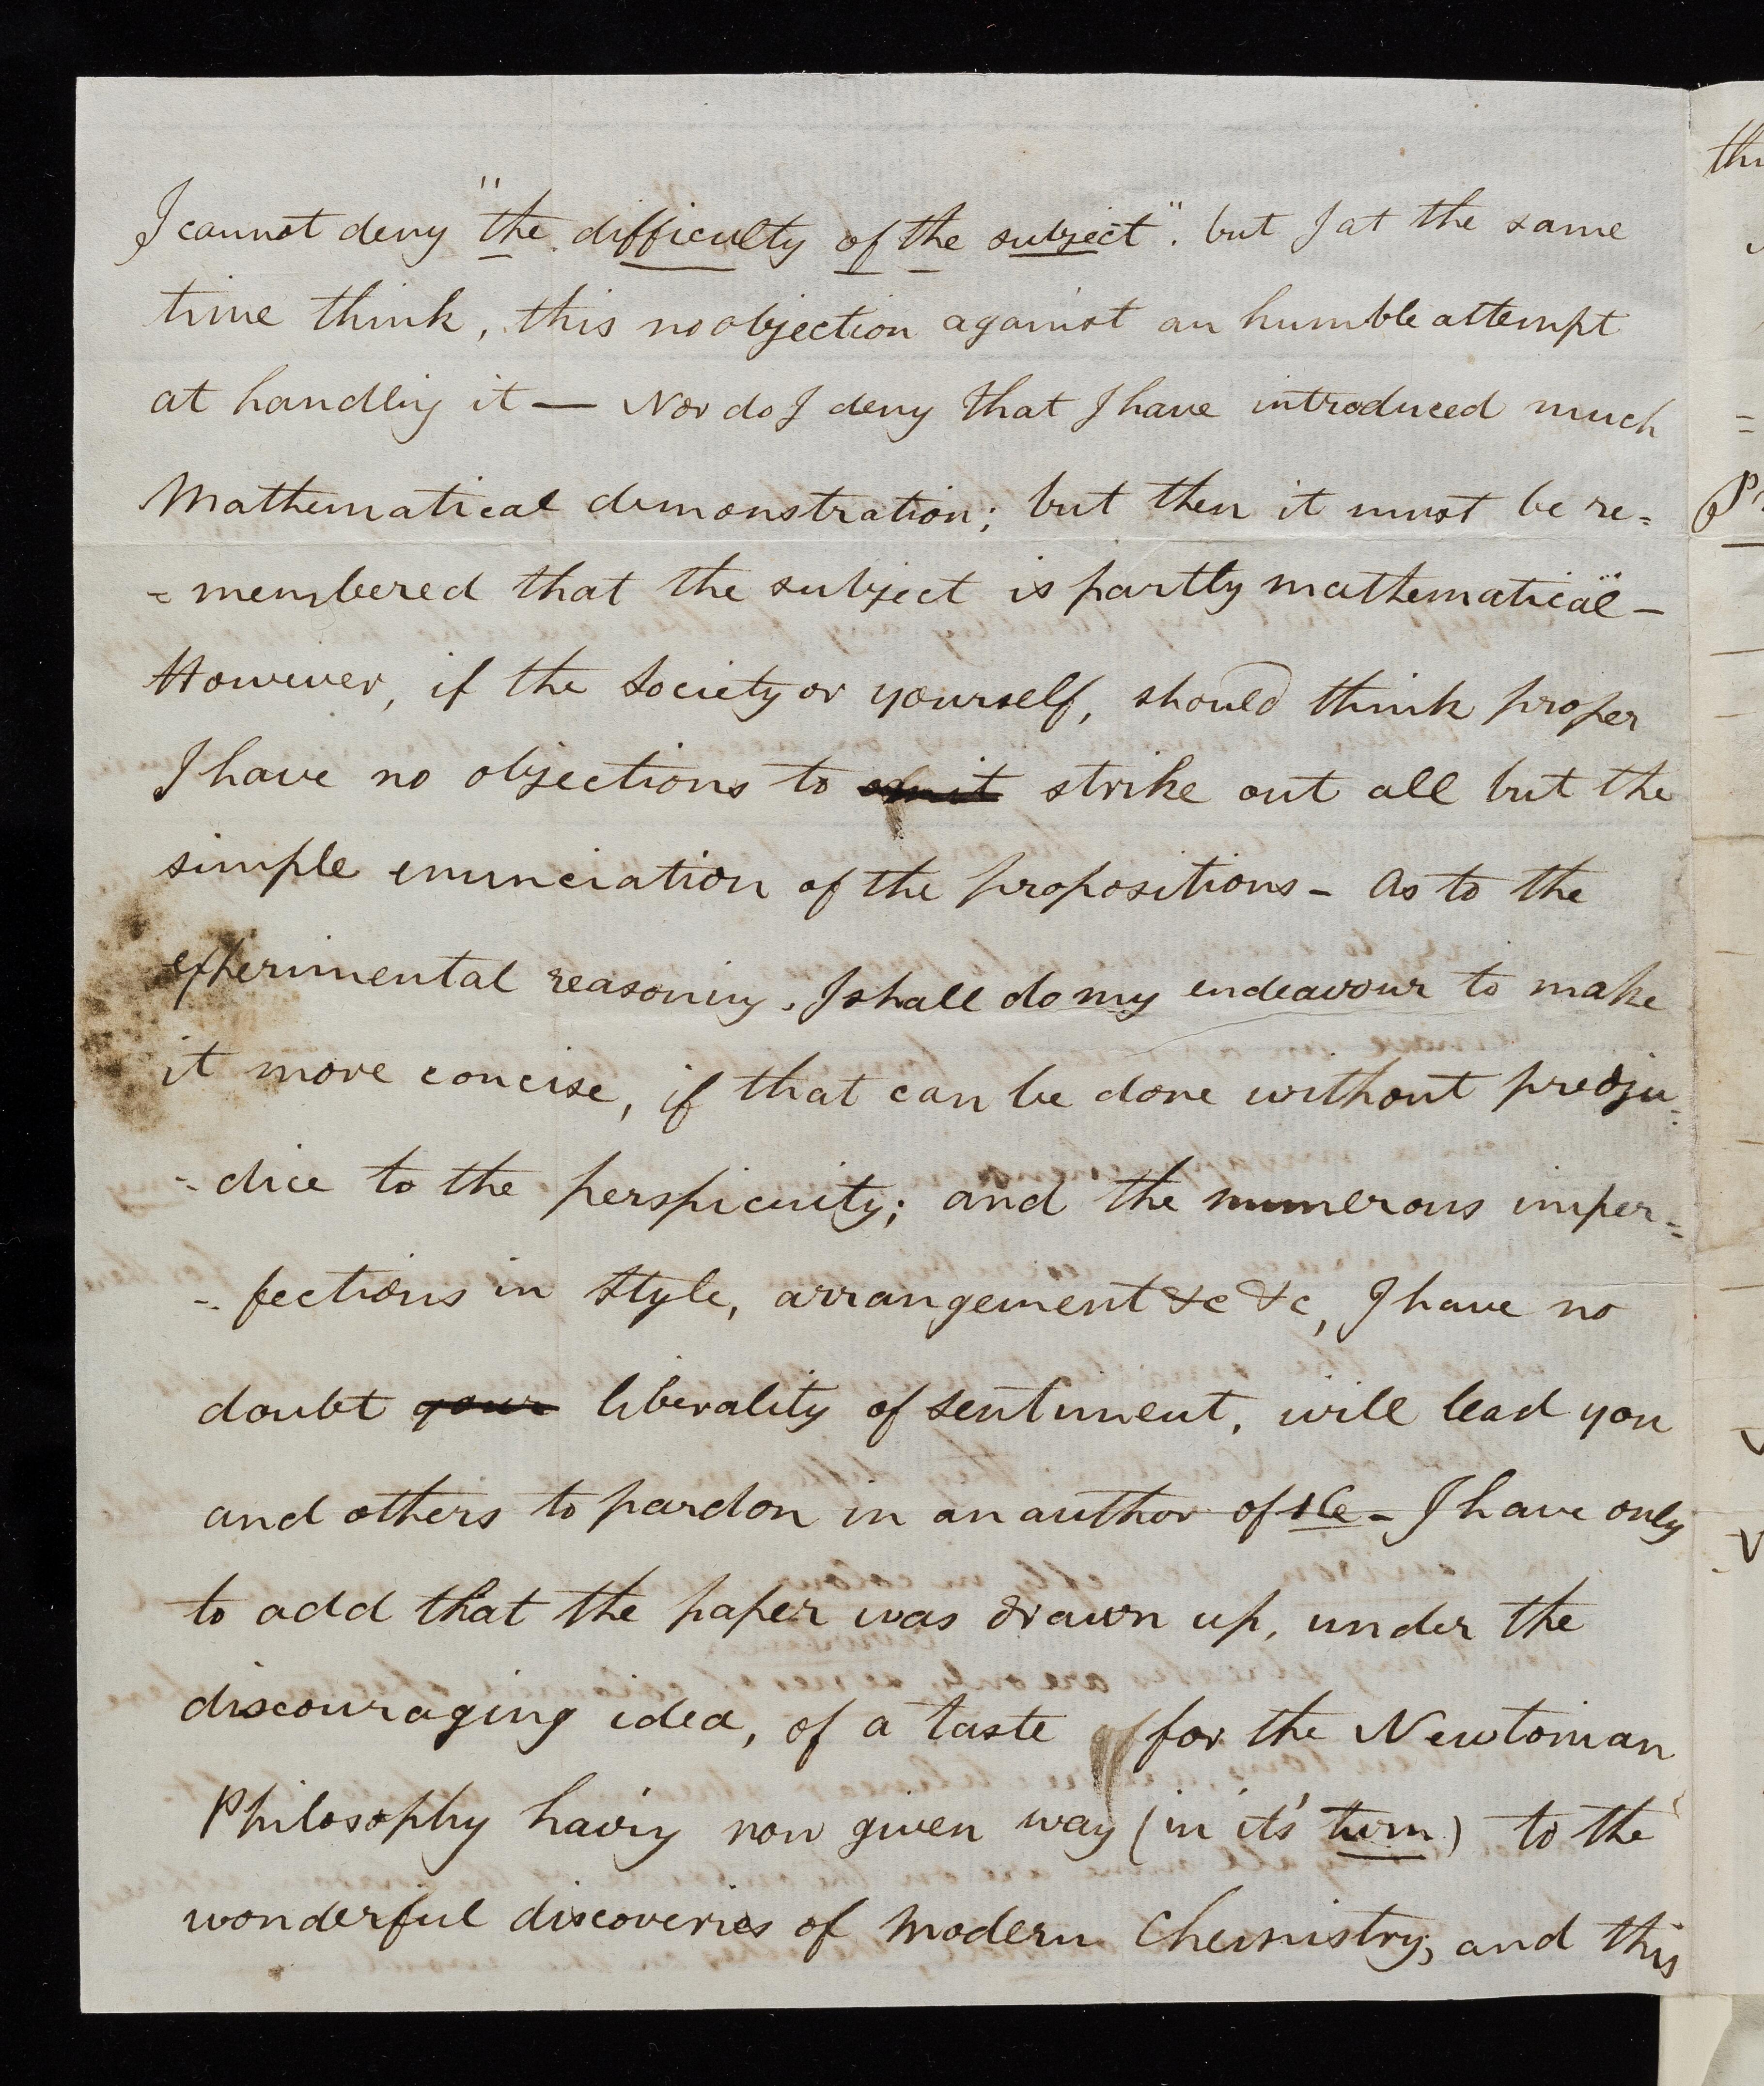 I cannot deny "the difficulty of the subject". but I at the same
time think, this no objection against an humble attempt
at handling it — Nor do I deny that I have introduced much
Mathematical demonstration; but then it must be re=
=membered that the subject is partly mathematical —
However, if the Society or yourself, should think proper
I have no objections to omit strike out all but the
simple enunciation of the propositions - As to the
experimental reasoning, I shall do my endeavour to make
it more concise, if that can be done without predju=
=dice to the perspicuity; and the numerous imper=
=fections in style, arrangement &c &c, I have no
doubt your liberality of sentiment, will lead you
and others to pardon in an author of - I have only
to add that the paper was drawn up, under the
discouraging idea, of a taste of for the Newtonian
Philosophy having now given way (in it's turn) to the
wonderful discoveries of Modern Chemistry, and this
th